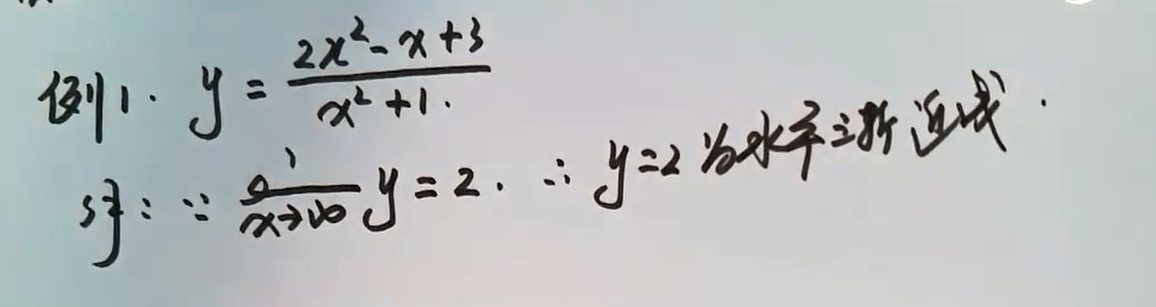 例1. y = (2x²-x+3)/(x²+1).
解: ∵ lim x→∞ y=2. ∴ y=2为水平渐近线.